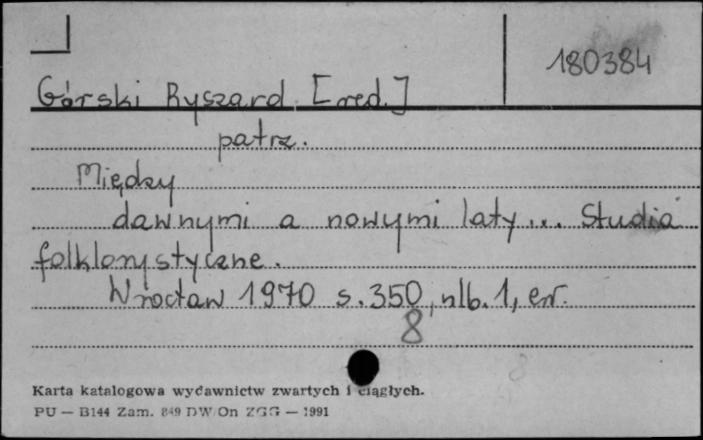 180384
Górski Ryszard. [red.]
patrz.
Między
dawnymi a nowymi laty... Studia
folklorystyczne.
Wrocław 1970 s. 350, nlb. 1, err.
8
Karta katalogowa wydawnictw zwartych i ciągłych.
PU — B144 Zam. 849 DW/On ZGG — 1991